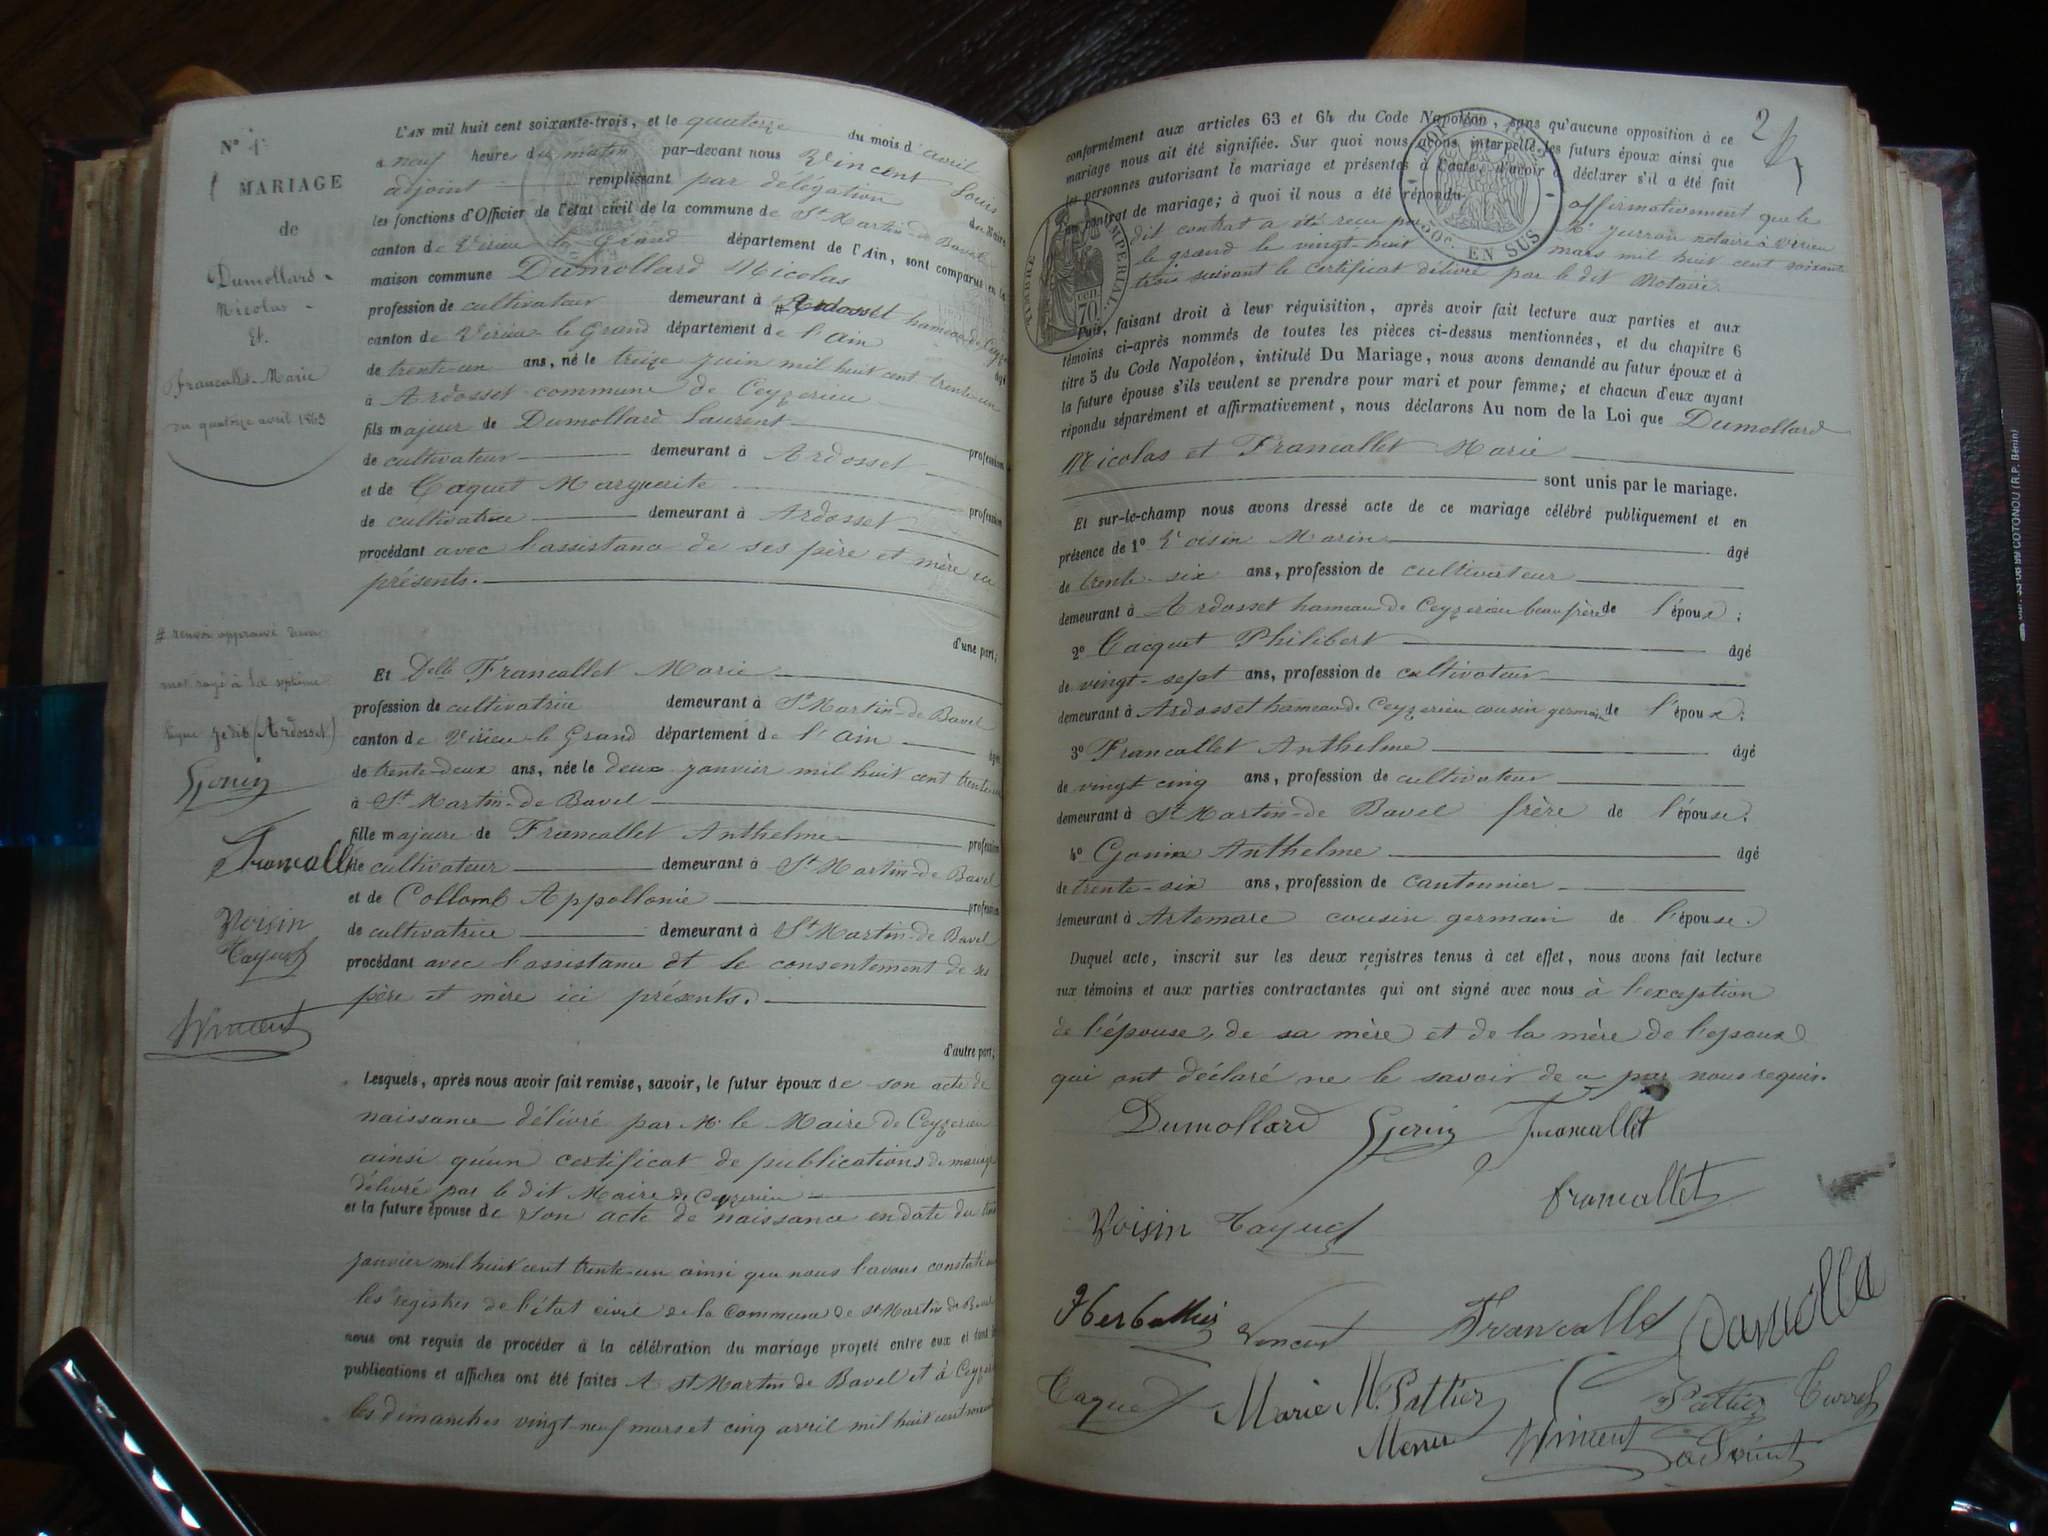 N° 1
MARIAGE
de
Dumollard
Nicolas
Et
Francallet Marie
du quatorze avril 1863
L'AN mil huit cent soixante-trois, et le quatorze du mois d'avril
à neuf heure du matin par-devant nous Vincent Louis
adjoint remplissant par délégation du Maire
les fonctions d'Officier de l'état civil de la commune de St Martin-de Bavel
canton de Virieu le Grand département de l'Ain, sont comparus en la
maison commune Dumollard Nicolas
profession de cultivateur demeurant à # Ardosset hameau de Ceyz
canton de Virieu-le Grand département de l'ain âgé
de trente-un ans, né le treize juin mil huit cent trente-un
à Ardosset commune de Ceyzerieu
fils majeur de Dumollard Laurent profession
de cultivateur demeurant à Ardosset
et de Caquet Marguerite profession
de cultivatrice demeurant à Ardosset
procédant avec l'assistance de ses père et mère ici
présents.
d'une part;
# renvoi approuvé d'un
mot rayé à la septième
ligne je dis (Ardosset)
Gonin
Francalle
Voisin
Caquet
Vincent
Et Delle Francallet Marie
profession de cultivatrice demeurant à St Martin-de Bavel
canton de Virieu-le Grand département de l'ain âgée
de trente-deux ans, née le deux janvier mil huit cent trente un
à St Martin-de Bavel
fille majeure de Francallet Anthelme profession
de cultivateur demeurant à St Martin-de Bavel
et de Collomb Appollonie profession
de cultivatrice demeurant à St Martin-de Bavel
procédant avec l'assistance et le consentement de ses
père et mère ici présents.
d'autre part;
Lesquels, après nous avoir fait remise, savoir, le futur époux de son acte de
naissance délivré par Mr le Maire de Ceyzerieu
ainsi qu'un certificat de publications de mariage
délivré par le dit Maire de Ceyzerieu
et la future épouse de son acte de naissance en date du trois
janvier mil huit cent trente-un ainsi que nous l'avons constaté
les registres de l'état civil de la Commune de St Martin de Bavel
nous ont requis de procéder à la célébration du mariage projeté entre eux et dont les
publications et affiches ont été faites A St Martin de Bavel et à Ceyzerieu
les dimanches vingt-neuf mars et cinq avril mil huit cent soixante
2
conformément aux articles 63 et 64 du Code Napoléon, sans qu'aucune opposition à ce
mariage nous ait été signifiée. Sur quoi nous avons interpellé les futurs époux ainsi que
les personnes autorisant le mariage et présentes à l'acte, d'avoir à déclarer s'il a été fait
un contrat de mariage; à quoi il nous a été répondu affirmativement que le
dit contrat a été reçu par Me notaire à Virieu
le grand le vingt-huit mars mil huit cent soixante
trois suivant le certificat délivré par le dit Notaire.
50c. EN SUS
TIMBRE IMPERIAL
70 cen
Puis, faisant droit à leur réquisition, après avoir fait lecture aux parties et aux
témoins ci-après nommés de toutes les pièces ci-dessus mentionnées, et du chapitre 6
titre 5 du Code Napoléon, intitulé Du Mariage, nous avons demandé au futur époux et à
la future épouse s'ils veulent se prendre pour mari et pour femme; et chacun d'eux ayant
répondu séparément et affirmativement, nous déclarons Au nom de la Loi que Dumollard
Nicolas et Francallet Marie
sont unis par le mariage.
Et sur-le-champ nous avons dressé acte de ce mariage célébré publiquement et en
présence de 1° Voisin Marin âgé
de trente-six ans, profession de cultivateur
demeurant à Ardosset hameau de Ceyzerieu beau frère de l'époux;
2° Cacquet Philibert âgé
de vingt-sept ans, profession de cultivateur
demeurant à Ardosset hameau de Ceyzerieu cousin germain de l'époux;
3° Francallet Anthelme âgé
de vingt cinq ans, profession de cultivateur
demeurant à St Martin-de Bavel frère de l'épouse;
4° Gonin Anthelme âgé
de trente-six ans, profession de cantonnier
demeurant à Artemare cousin germain de l'épouse.
Duquel acte, inscrit sur les deux registres tenus à cet effet, nous avons fait lecture
aux témoins et aux parties contractantes qui ont signé avec nous à l'exception
de l'épouse, de sa mère et de la mère de l'époux
qui ont déclaré ne le savoir de ce par nous requis.
Dumollard Gonin Francallet
Francallet
Voisin Caquet
Vincent Francalle Dumolla
Caquet Marie M. Pattier Pattier
Vincent